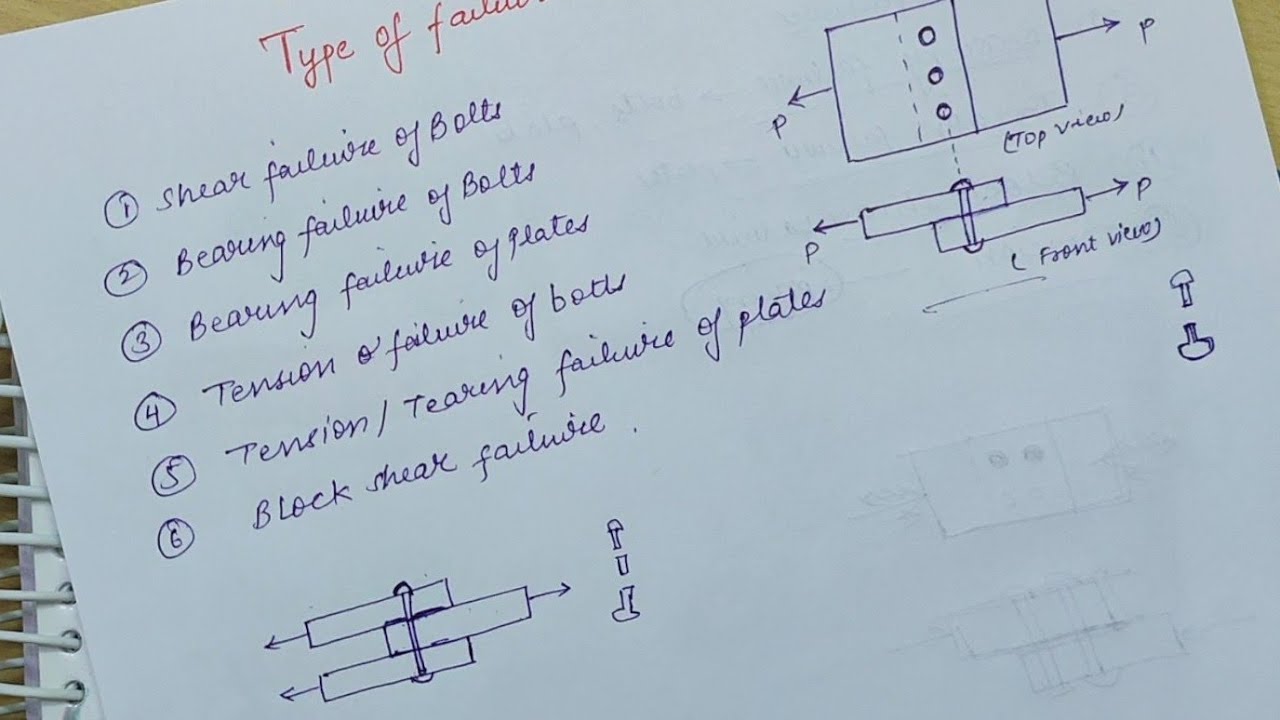 Type of failur
① Shear failure of Bolts
② Bearing failure of Bolts
③ Bearing failure of Plates
④ Tension failure of bolts
⑤ Tension / Tearing failure of plates
⑥ Block shear failure.
P
P
(Top view)
P
P
( Front view)